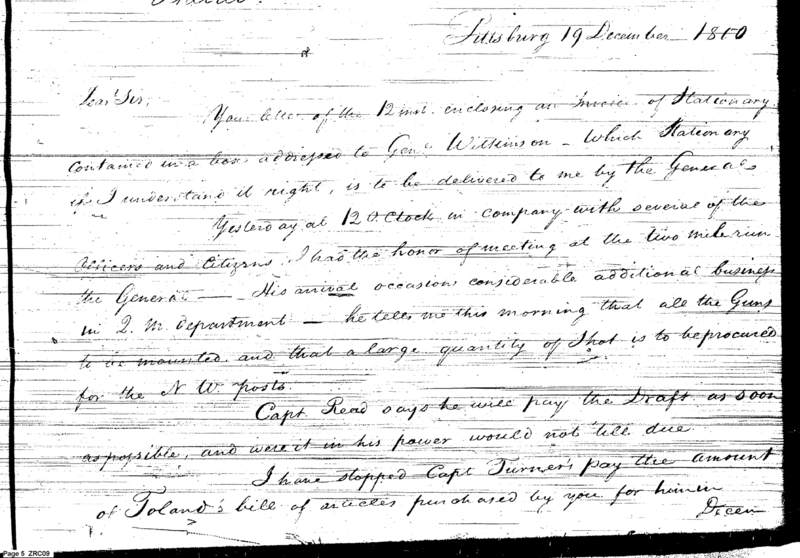 Pittsburg 19 December 1810
Dear Sir,
Your letter of the 12 inst. enclosing an Invoice of Stationary
contained in a box addressed to Genl Wilkinson – Which Stationary
if I understand it right, is to be delivered to me by the General
Yesterday at 12 OClock in company with several of the
Officers and Citizens I had the honor of meeting at the two mile run
the General — His arrival occasions considerable additional business
in Q. M. department — he tells me this morning that all the Guns
to be mounted and that a large quantity of Shot is to be procured
for the N W posts.
Capt Read says he will pay the Draft as soon
as possible, and were it in his power would not till due
I have stopped Capt Turner's pay the amount
of Toland's bill of articles purchased by you for him in
Decem
Page 5 ZRC09